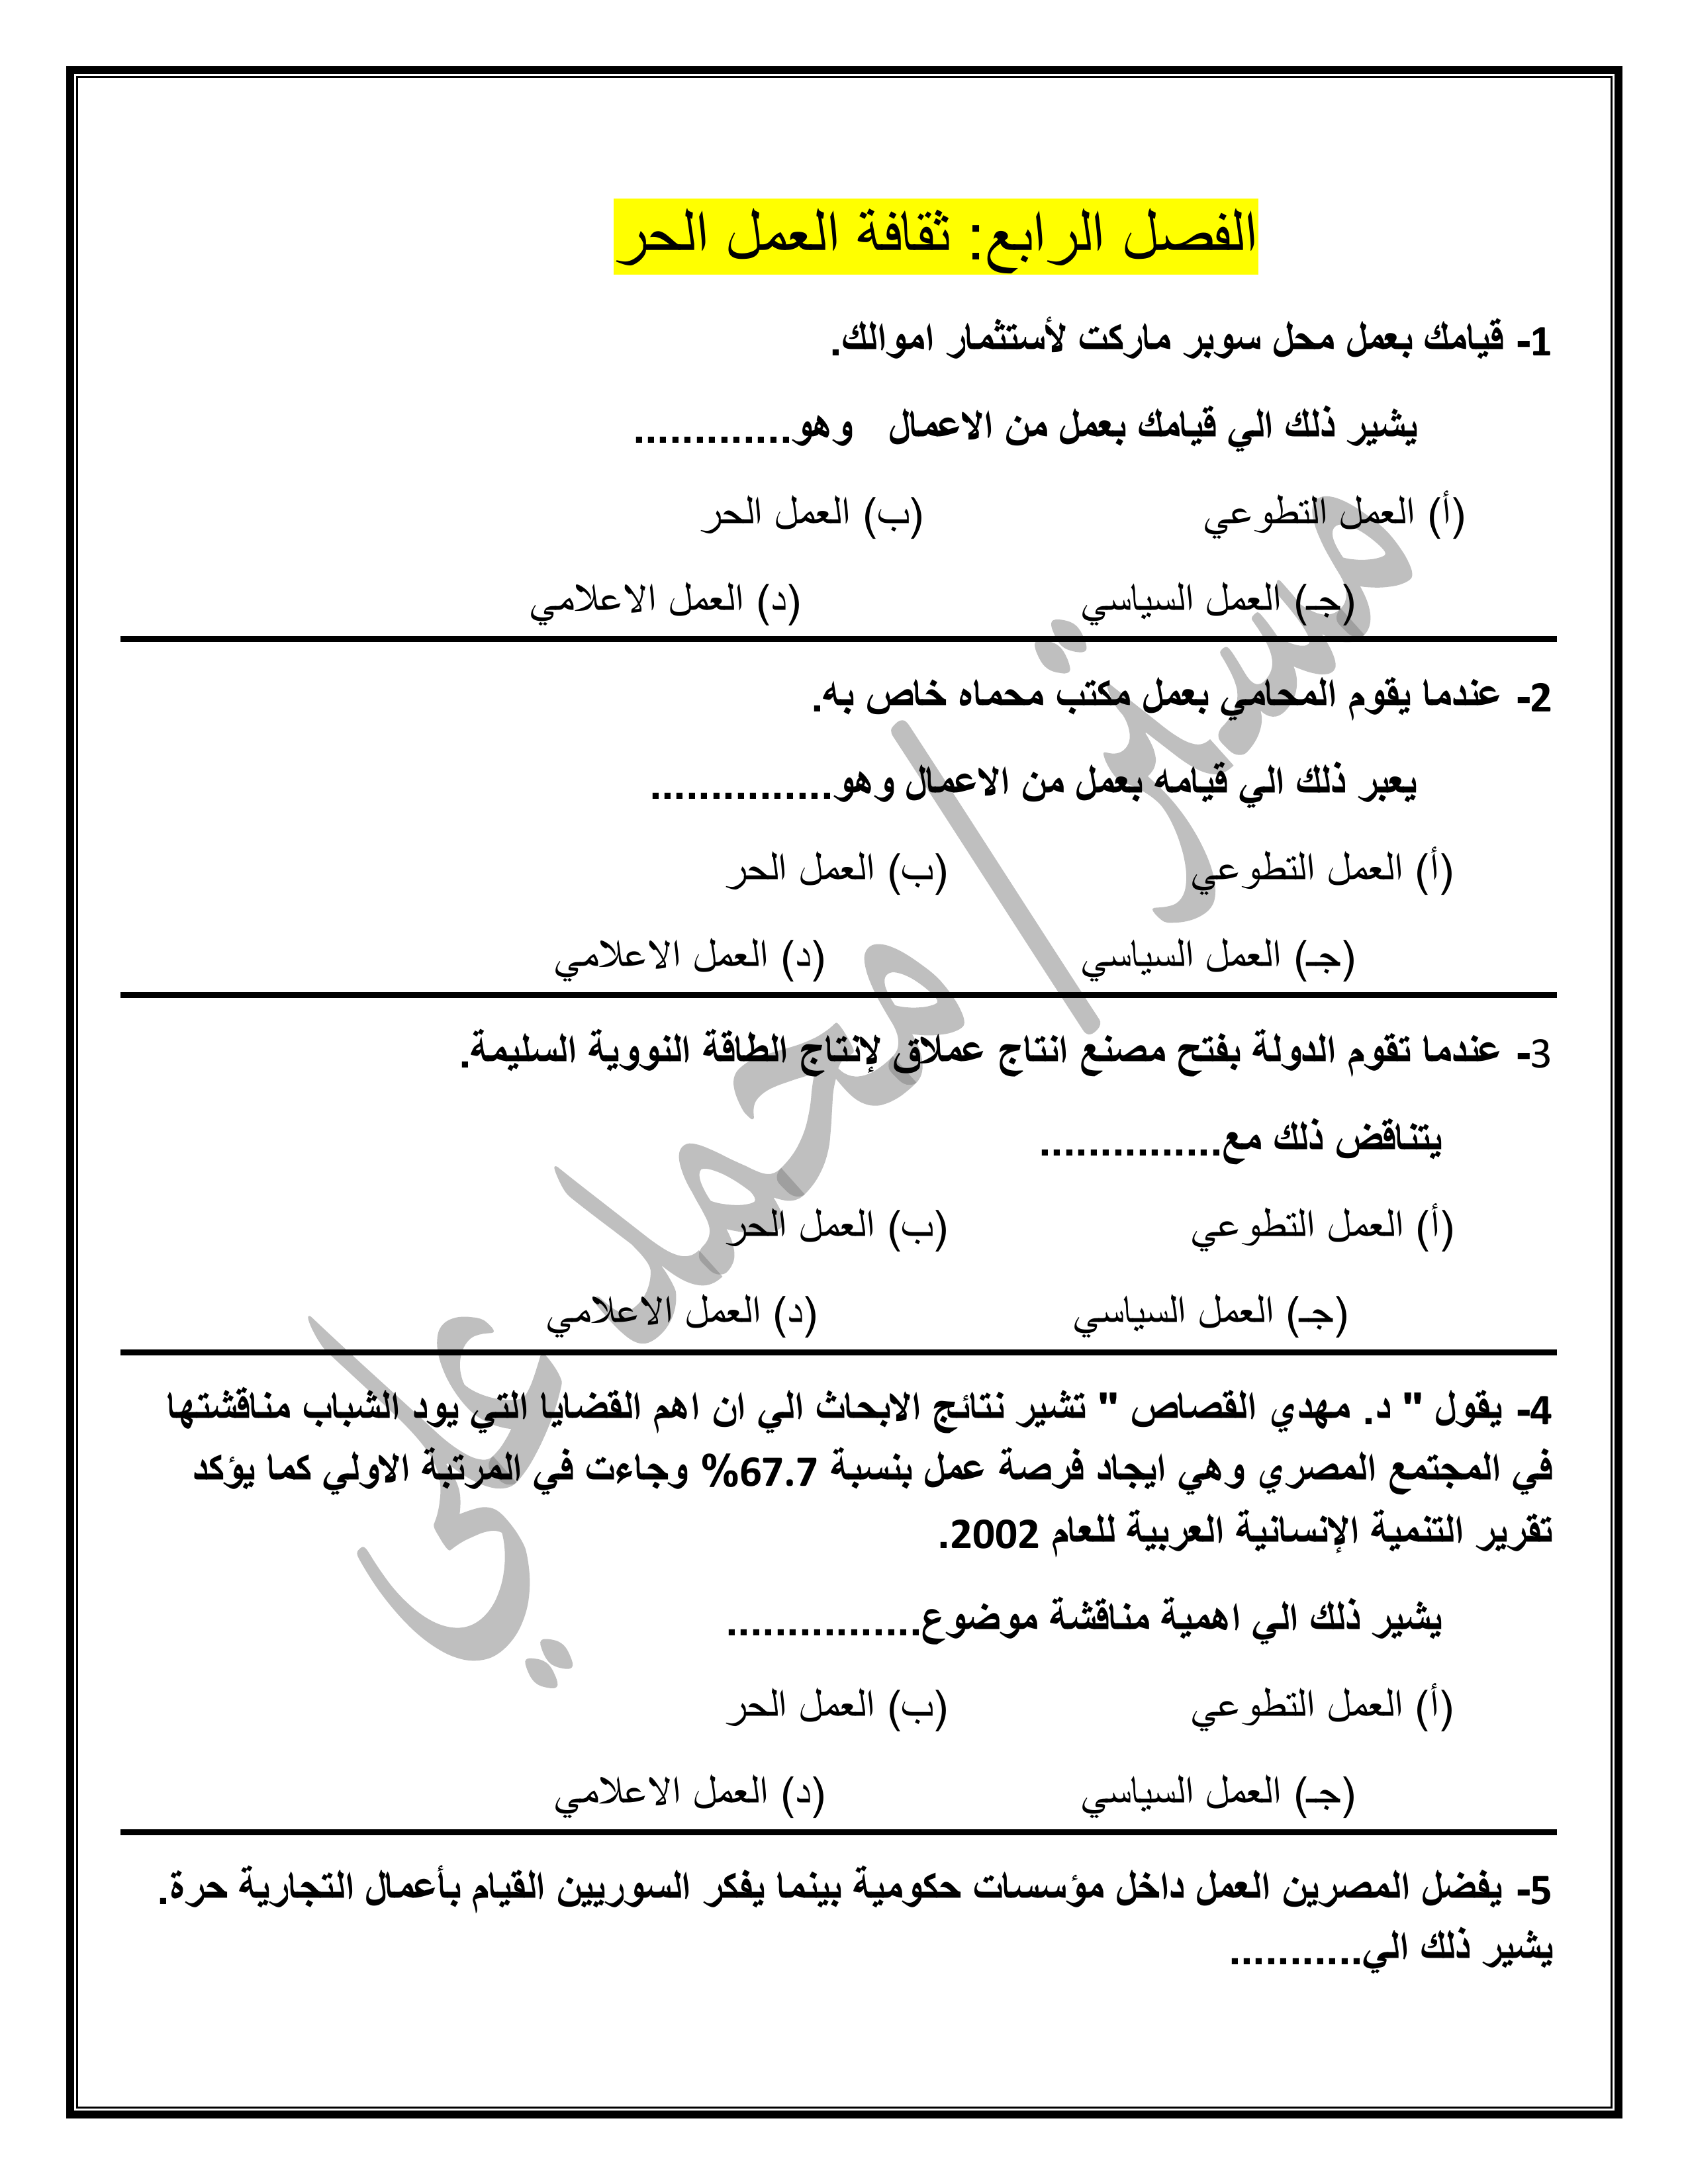 الفصل الرابع: ثقافة العمل الحر
1- قيامك بعمل محل سوبر ماركت لأستثمار اموالك.
يشير ذلك الي قيامك بعمل من الاعمال وهو.............
(أ) العمل التطوعي (ب) العمل الحر
(جـ) العمل السياسي (د) العمل الاعلامي
2- عندما يقوم المحامي بعمل مكتب محماه خاص به.
يعبر ذلك الي قيامه بعمل من الاعمال وهو...............
(أ) العمل التطوعي (ب) العمل الحر
(جـ) العمل السياسي (د) العمل الاعلامي
3- عندما تقوم الدولة بفتح مصنع انتاج عملاق لإنتاج الطاقة النووية السليمة.
يتناقض ذلك مع...............
(أ) العمل التطوعي (ب) العمل الحر
(جـ) العمل السياسي (د) العمل الاعلامي
4- يقول " د. مهدي القصاص " تشير نتائج الابحاث الي ان اهم القضايا التي يود الشباب مناقشتها
في المجتمع المصري وهي ايجاد فرصة عمل بنسبة 67.7% وجاءت في المرتبة الاولي كما يؤكد
تقرير التنمية الإنسانية العربية للعام 2002.
يشير ذلك الي اهمية مناقشة موضوع................
(أ) العمل التطوعي (ب) العمل الحر
(جـ) العمل السياسي (د) العمل الاعلامي
5- يفضل المصرين العمل داخل مؤسسات حكومية بينما يفكر السوريين القيام بأعمال التجارية حرة.
يشير ذلك الي...........
مستر/ محمد علي